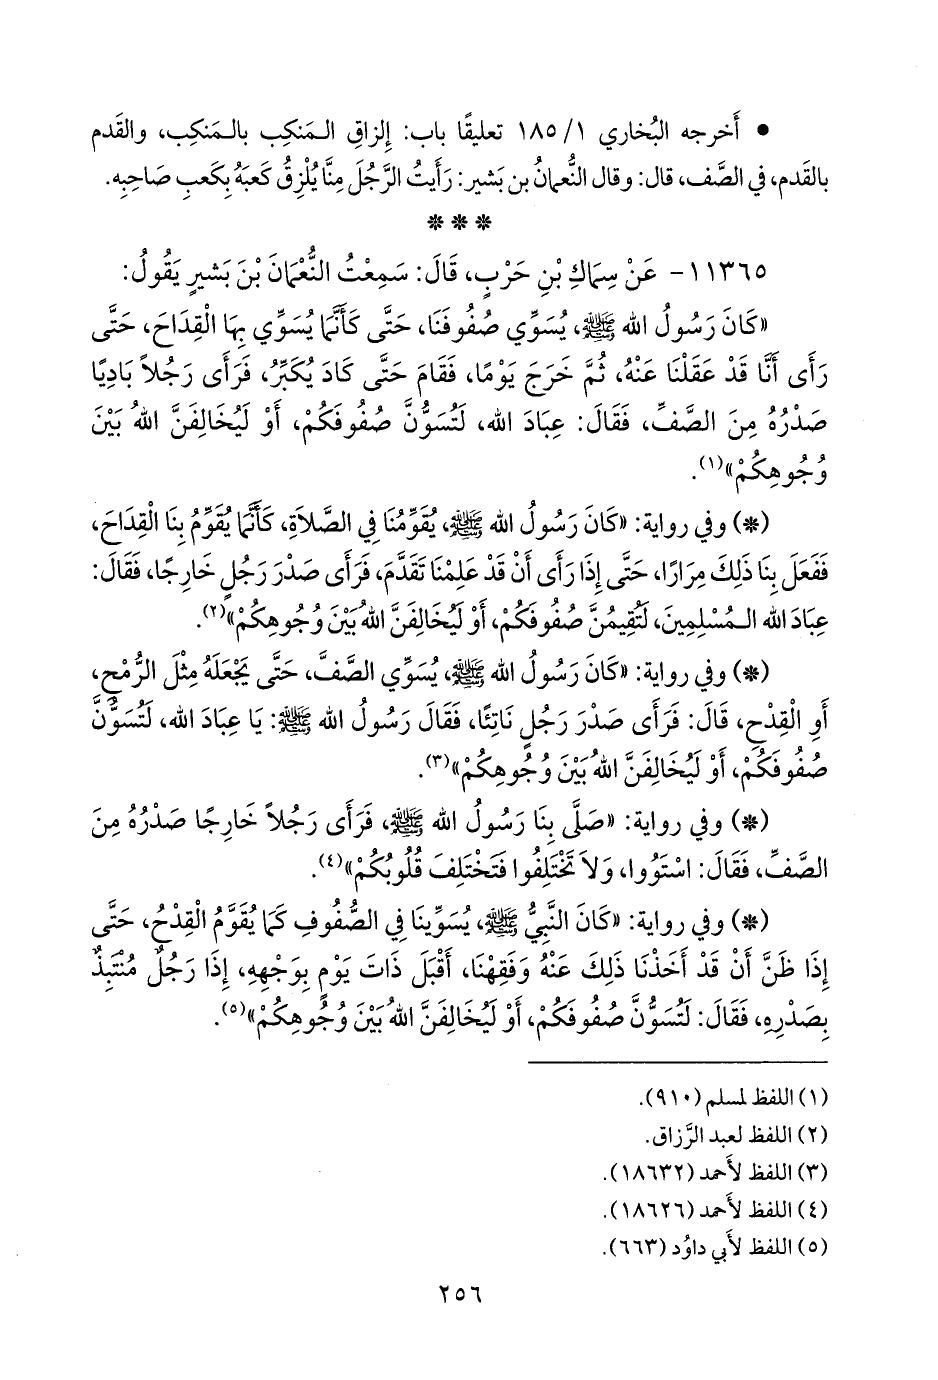 • أَخرجه البُخاري ١/ ١٨٥ تعليقًا باب: إِلزاقِ الـمَنكِب بالـمَنكِب، والقَدم
بالقَدم، في الصَّف، قال: وقال النُّعمانُ بن بَشير: رَأَيتُ الرَّجُلَ مِنَّا يُلْزِقُ كَعبَهُ بِكَعبِ صَاحِبِه.
* * *
١١٣٦٥- عَنْ سِمَاكِ بْنِ حَرْبٍ، قَالَ: سَمِعْتُ النُّعْمَانَ بْنَ بَشيرٍ يَقُولُ:
«كَانَ رَسُولُ الله ﷺ، يُسَوِّي صُفُوفَنَا، حَتَّى كَأَنَّمَا يُسَوِّي بِهَا الْقِدَاحَ، حَتَّى
رَأَى أَنَّا قَدْ عَقَلْنَا عَنْهُ، ثُمَّ خَرَجَ يَوْمًا، فَقَامَ حَتَّى كَادَ يُكَبِّرُ، فَرَأَى رَجُلاً بَادِيًا
صَدْرُهُ مِنَ الصَّفِّ، فَقَالَ: عِبَادَ الله، لَتُسَوُّنَّ صُفُوفَكُمْ، أَوْ لَيُخَالِفَنَّ اللهُ بَيْنَ
وُجُوهِكُمْ»(١).
(*) وفي رواية: «كَانَ رَسُولُ الله ﷺ، يُقَوِّمُنَا فِي الصَّلاَةِ، كَأَنَّمَا يُقَوِّمُ بِنَا الْقِدَاحَ،
فَفَعَلَ بِنَا ذَلِكَ مِرَارًا، حَتَّى إِذَا رَأَى أَنْ قَدْ عَلِمْنَا تَقَدَّمَ، فَرَأَى صَدْرَ رَجُلٍ خَارِجًا، فَقَالَ:
عِبَادَ الله الـمُسْلِمِينَ، لَتُقِيمُنَّ صُفُوفَكُمْ، أَوْ لَيُخَالِفَنَّ اللهُ بَيْنَ وُجُوهِكُمْ»(٢).
(*) وفي رواية: «كَانَ رَسُولُ الله ﷺ، يُسَوِّي الصَّفَّ، حَتَّى يَجْعَلَهُ مِثْلَ الرُّمْحِ،
أَوِ الْقِدْحِ، قَالَ: فَرَأَى صَدْرَ رَجُلٍ نَاتِئًا، فَقَالَ رَسُولُ الله ﷺ: يَا عِبَادَ الله، لَتُسَوُّنَّ
صُفُوفَكُمْ، أَوْ لَيُخَالِفَنَّ اللهُ بَيْنَ وُجُوهِكُمْ»(٣).
(*) وفي رواية: «صَلَّى بِنَا رَسُولُ الله ﷺ، فَرَأَى رَجُلاً خَارِجًا صَدْرُهُ مِنَ
الصَّفِّ، فَقَالَ: اسْتَوُوا، وَلاَ تَخْتَلِفُوا فَتَخْتَلِفَ قُلُوبُكُمْ»(٤).
(*) وفي رواية: «كَانَ النَّبِيُّ ﷺ، يُسَوِّينَا فِي الصُّفُوفِ كَمَا يُقَوَّمُ الْقِدْحُ، حَتَّى
إِذَا ظَنَّ أَنْ قَدْ أَخَذْنَا ذَلِكَ عَنْهُ وَفَقِهْنَا، أَقْبَلَ ذَاتَ يَوْمٍ بِوَجْهِهِ، إِذَا رَجُلٌ مُنْتَبِذٌ
بِصَدْرِهِ، فَقَالَ: لَتُسَوُّنَّ صُفُوفَكُمْ، أَوْ لَيُخَالِفَنَّ اللهُ بَيْنَ وُجُوهِكُمْ»(٥).
(١) اللفظ لمسلم (٩١٠).
(٢) اللفظ لعبد الرَّزاق.
(٣) اللفظ لأَحمد (١٨٦٣٢).
(٤) اللفظ لأَحمد (١٨٦٢٦).
(٥) اللفظ لأَبي داوُد (٦٦٣).
٢٥٦